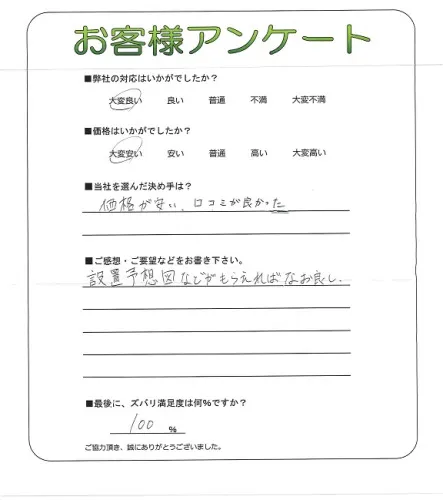 お客様アンケート
■弊社の対応はいかがでしたか？
大変良い 良い 普通 不満 大変不満
■価格はいかがでしたか？
大変安い 安い 普通 高い 大変高い
■当社を選んだ決め手は？
価格が安い、口コミが良かった
■ご感想・ご要望などをお書き下さい。
設置予想図などがもらえればなお良し。
■最後に、ズバリ満足度は何%ですか？
100 %
ご協力頂き、誠にありがとうございました。